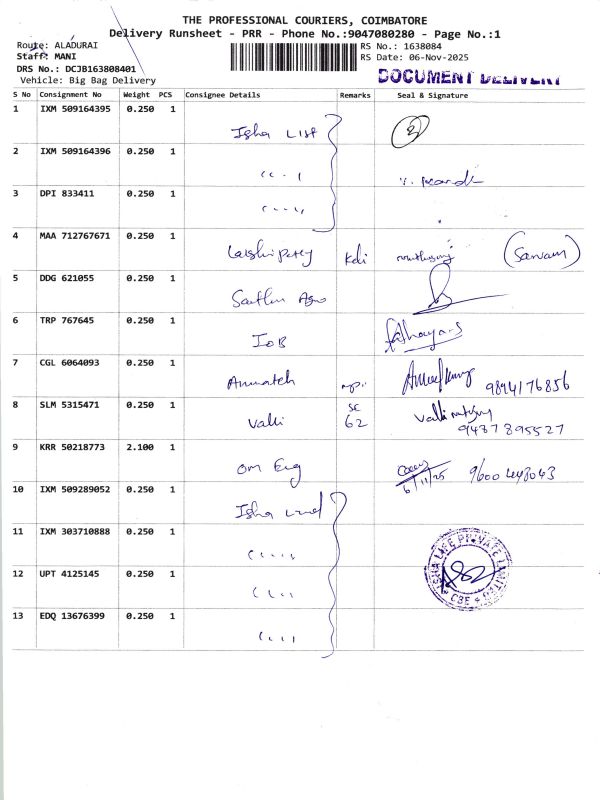 THE PROFESSIONAL COURIERS, COIMBATORE
Delivery Runsheet - PRR - Phone No.:9047080280 - Page No.:1
Route: ALADURAI RS No.: 1638084
Staff: MANI RS Date: 06-Nov-2025
DRS No.: DCJB163808401
Vehicle: Big Bag Delivery DOCUMENT DELIVERY
S No Consignment No Weight PCS Consignee Details Remarks Seal & Signature
1 IXM 509164395 0.250 1
Isha
2 IXM 509164396 0.250 1
3 DPI 833411 0.250 1
4 MAA 712767671 0.250 1
(Sarvam)
5 DDG 621055 0.250 1
6 TRP 767645 0.250 1
IOB
7 CGL 6064093 0.250 1
9894176856
8 SLM 5315471 0.250 1 SC
Valli 62 Valli
9487895527
9 KRR 50218773 2.100 1
Om Eng 6/11/25
10 IXM 509289052 0.250 1
Isha
11 IXM 303710888 0.250 1
ISHA LIFE PRIVATE LIMITED
CBE
12 UPT 4125145 0.250 1
13 EDQ 13676399 0.250 1